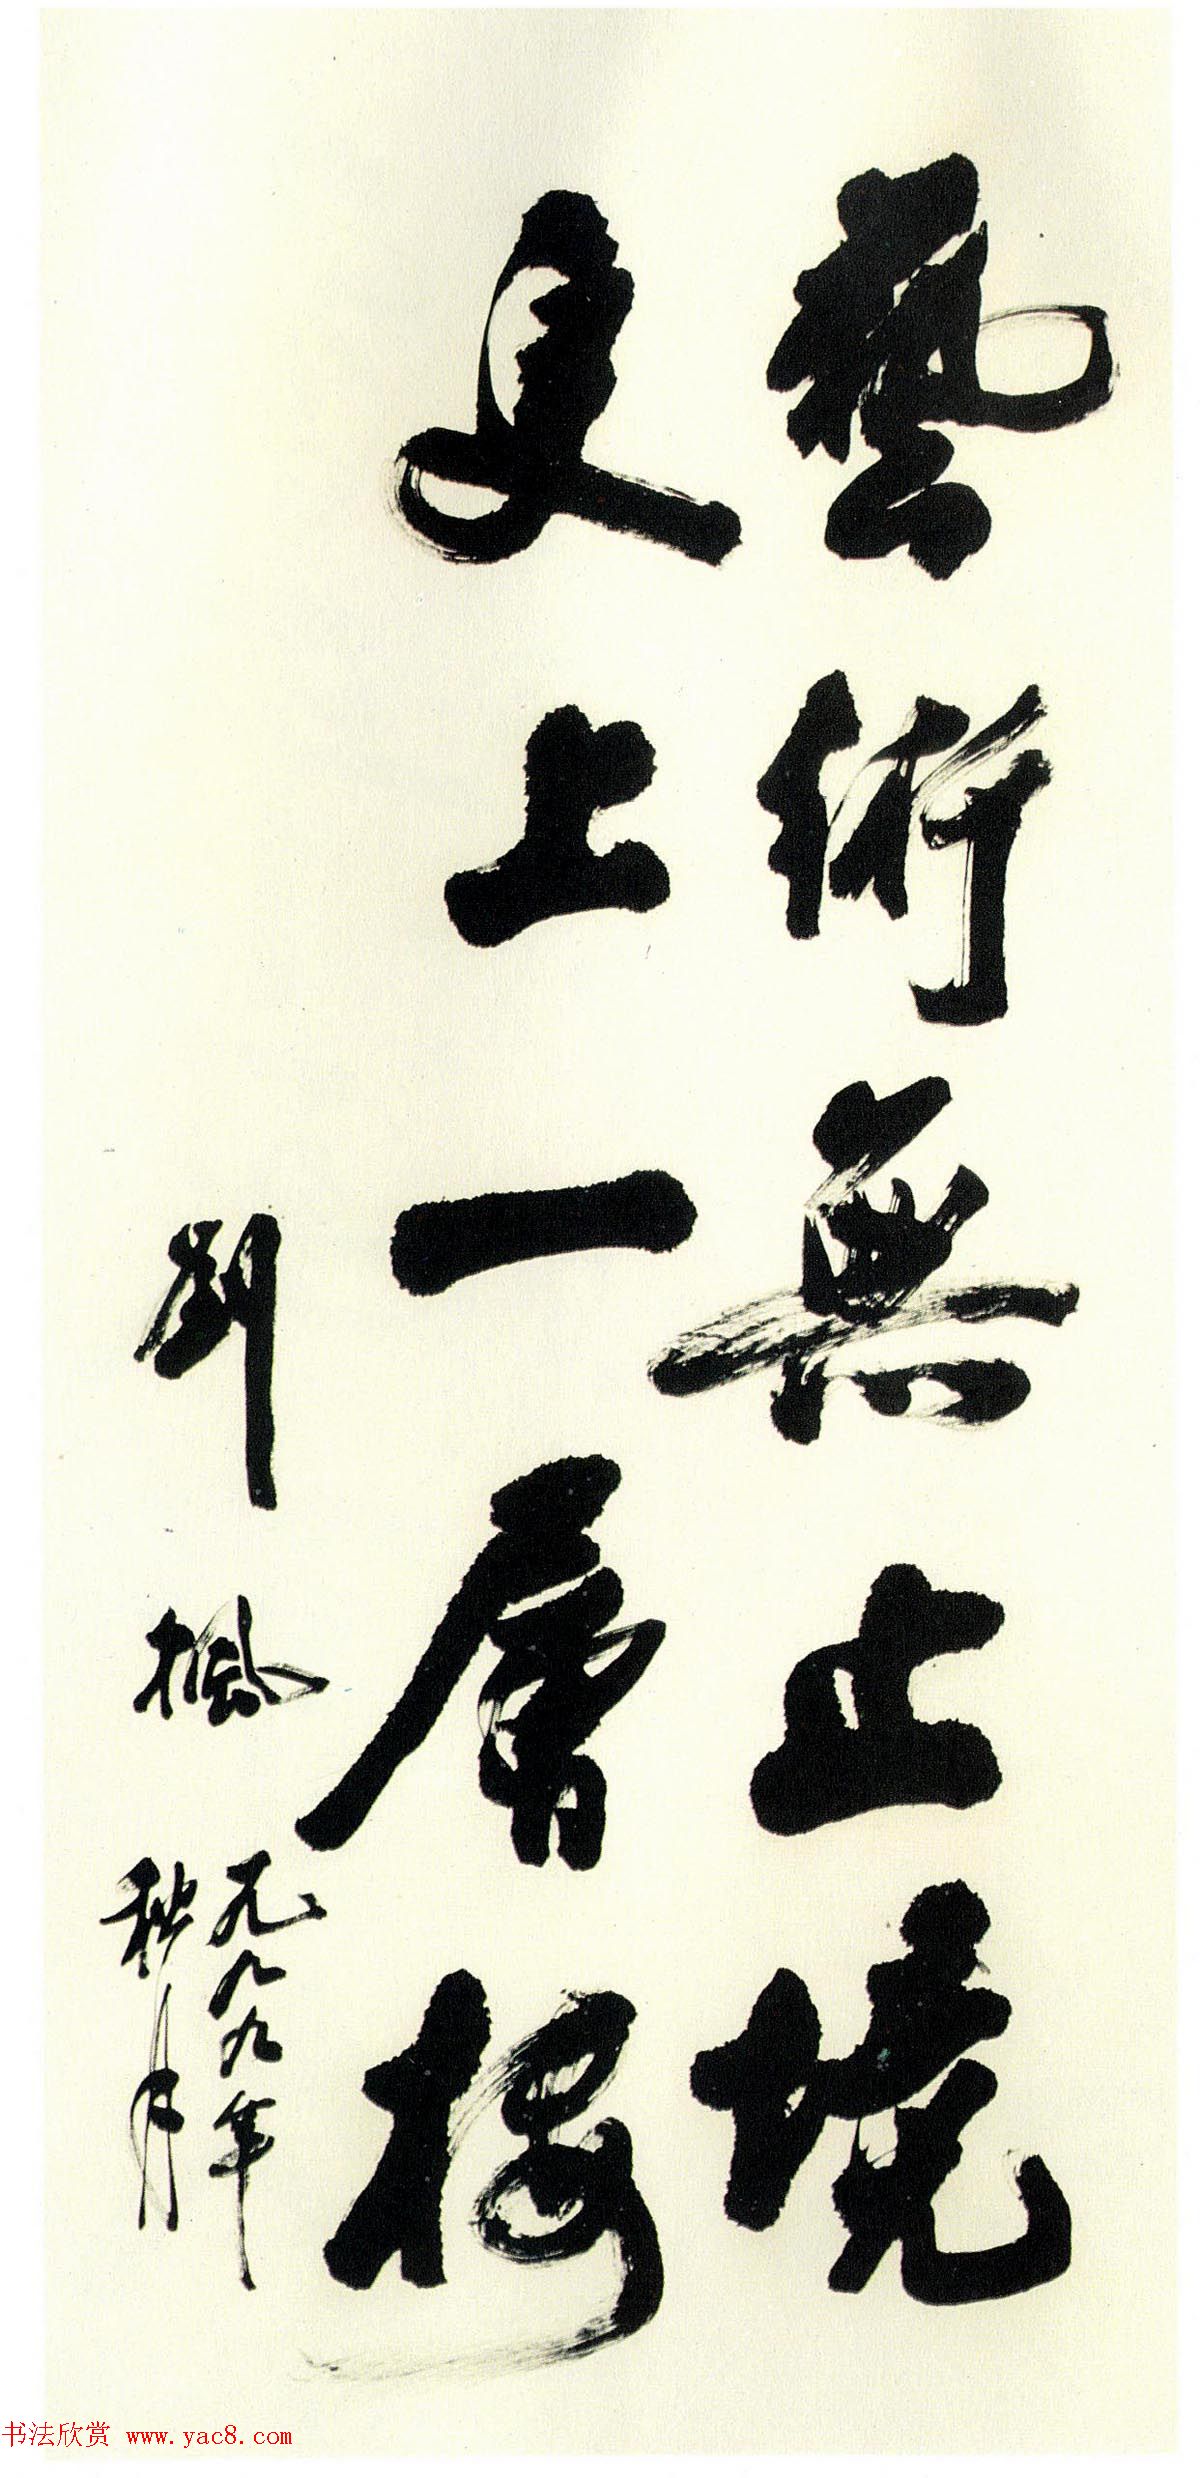 藝術無止境
更上一層樓
劉楓
一九九九年
秋月
书法欣赏 www.yac8.com